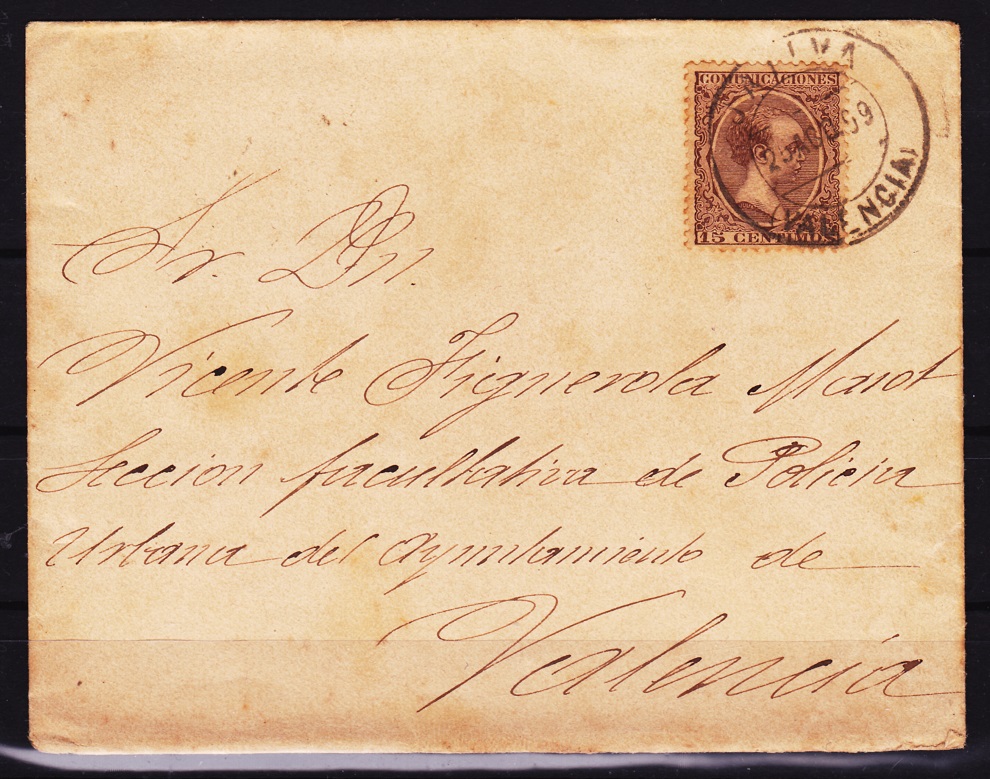 COMUNICACIONES
15 CENTIMOS
VALENCIA
Sr. Dn.
Vicente Figuerola Marot
Seccion facultativa de Policia
Urbana del Ayuntamiento de
Valencia